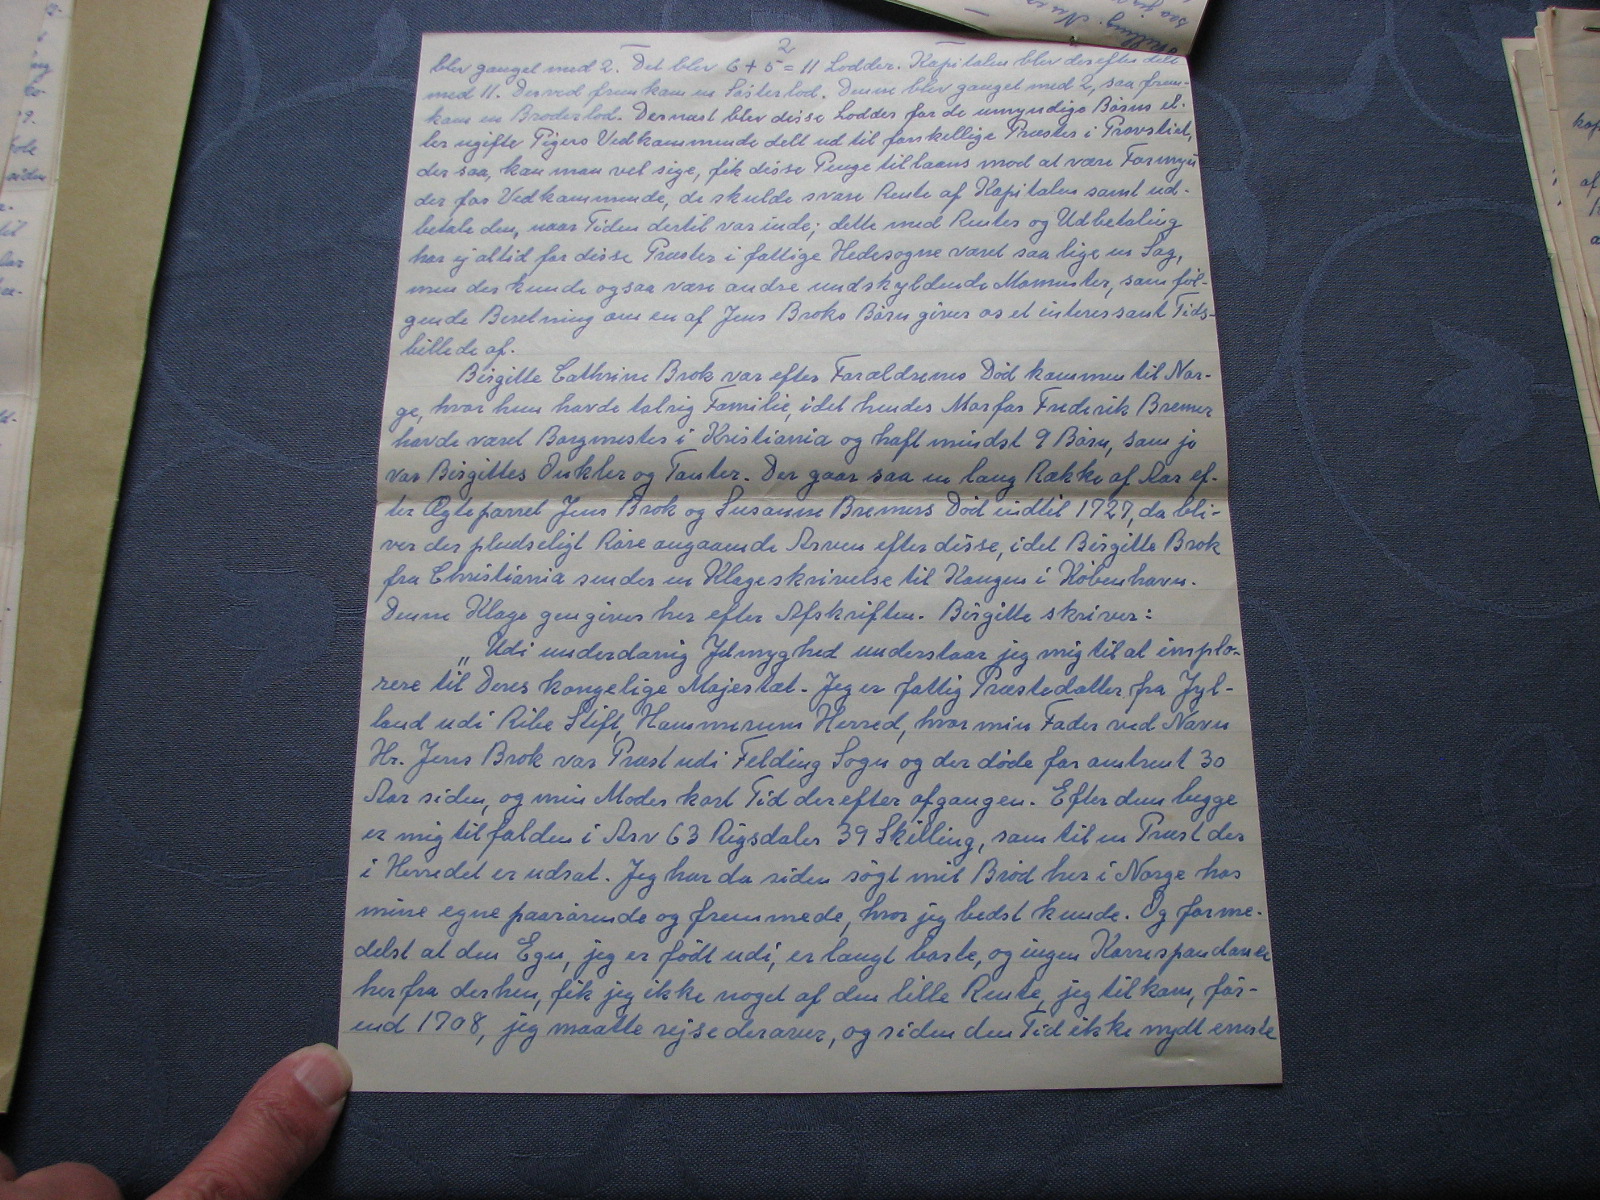 2
blev ganget med 2. Det blev 6 + 5 = 11 Lodder. Kapitalen blev derefter delt
med 11. Derved fremkom en Søsterlod. Denne blev ganget med 2, saa frem-
kom en Broderlod. Dernæst blev disse Lodder for de umyndige Børns el-
ler ugifte Pigers Vedkommende delt ud til forskellige Præster i Provstiet,
der saa, kan man vel sige, fik disse Penge tillaans mod at være Formyn
der for Vedkommende, de skulde svare Rente af Kapitalen samt ud-
betale den, naar Tiden dertil var inde; dette med Renter og Udbetaling
har ej altid for disse Præster i fattige Hedesogne været saa lige en Sag,
men der kunde ogsaa være andre undskyldende Momenter, som føl-
gende Beretning om en af Jens Broks Børn giver os et interessant Tids-
billede af.
Birgitte Cathrine Brok var efter Forældrenes Død kommen til Nor-
ge, hvor hun havde talrig Familie, idet hendes Morfar Frederik Bremer
havde været Borgmester i Kristiania og haft mindst 9 Børn, som jo
var Birgittes Onkler og Tanter. Der gaar saa en lang Række af Aar ef-
ter Ægteparret Jens Brok og Susanne Bremers Død indtil 1727, da bli-
ver der pludseligt Røre angaaende Arven efter disse, idet Birgitte Brok
fra Christiania sender en Klageskrivelse til Kongen i København.
Denne Klage gengives her efter Afskriften. Birgitte skriver:
„Udi underdanig Ydmyghed understaar jeg mig til at implo-
rere til Deres kongelige Majestæt. Jeg er fattig Præstedatter fra Jyl-
land udi Ribe Stift, Hammerum Herred, hvor min Fader ved Navn
Hr. Jens Brok var Præst udi Felding Sogn og der døde for ombrent 30
Aar siden, og min Moder kort Tid derefter afgangen. Efter dem begge
er mig tilfalden i Arv 63 Rigsdaler 39 Skilling, som til en Præst der
i Herredet er udsat. Jeg har da siden søgt mit Brød her i Norge hos
mine egne paarørende og fremmede, hvor jeg bedst kunde. Og forme-
delst at den Egn, jeg er født udi, er langt borte, og ingen Korrespondance
herfra derhen, fik jeg ikke noget af den lille Rente, jeg tilkom, før-
end 1708, jeg maatte rejse derover, og siden den Tid ikke nydt eneste